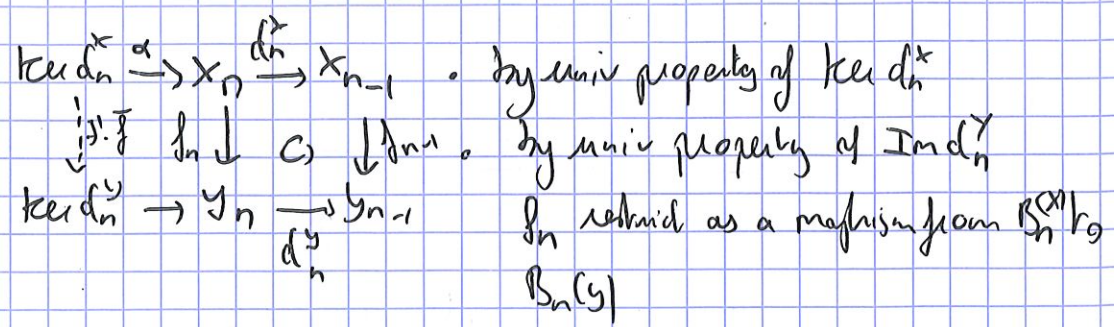 ker d_n^x →^α X_n →^{d_n^x} X_{n-1} . by univ property of ker d_n^x
∃! f̄ f_n ↓ C ↓ f_{n-1} . by univ property of Im d_n^y
ker d_n^y → Y_n → Y_{n-1} f_n restrict as a morphism from B_n(X) to
d_n^y B_n(y)